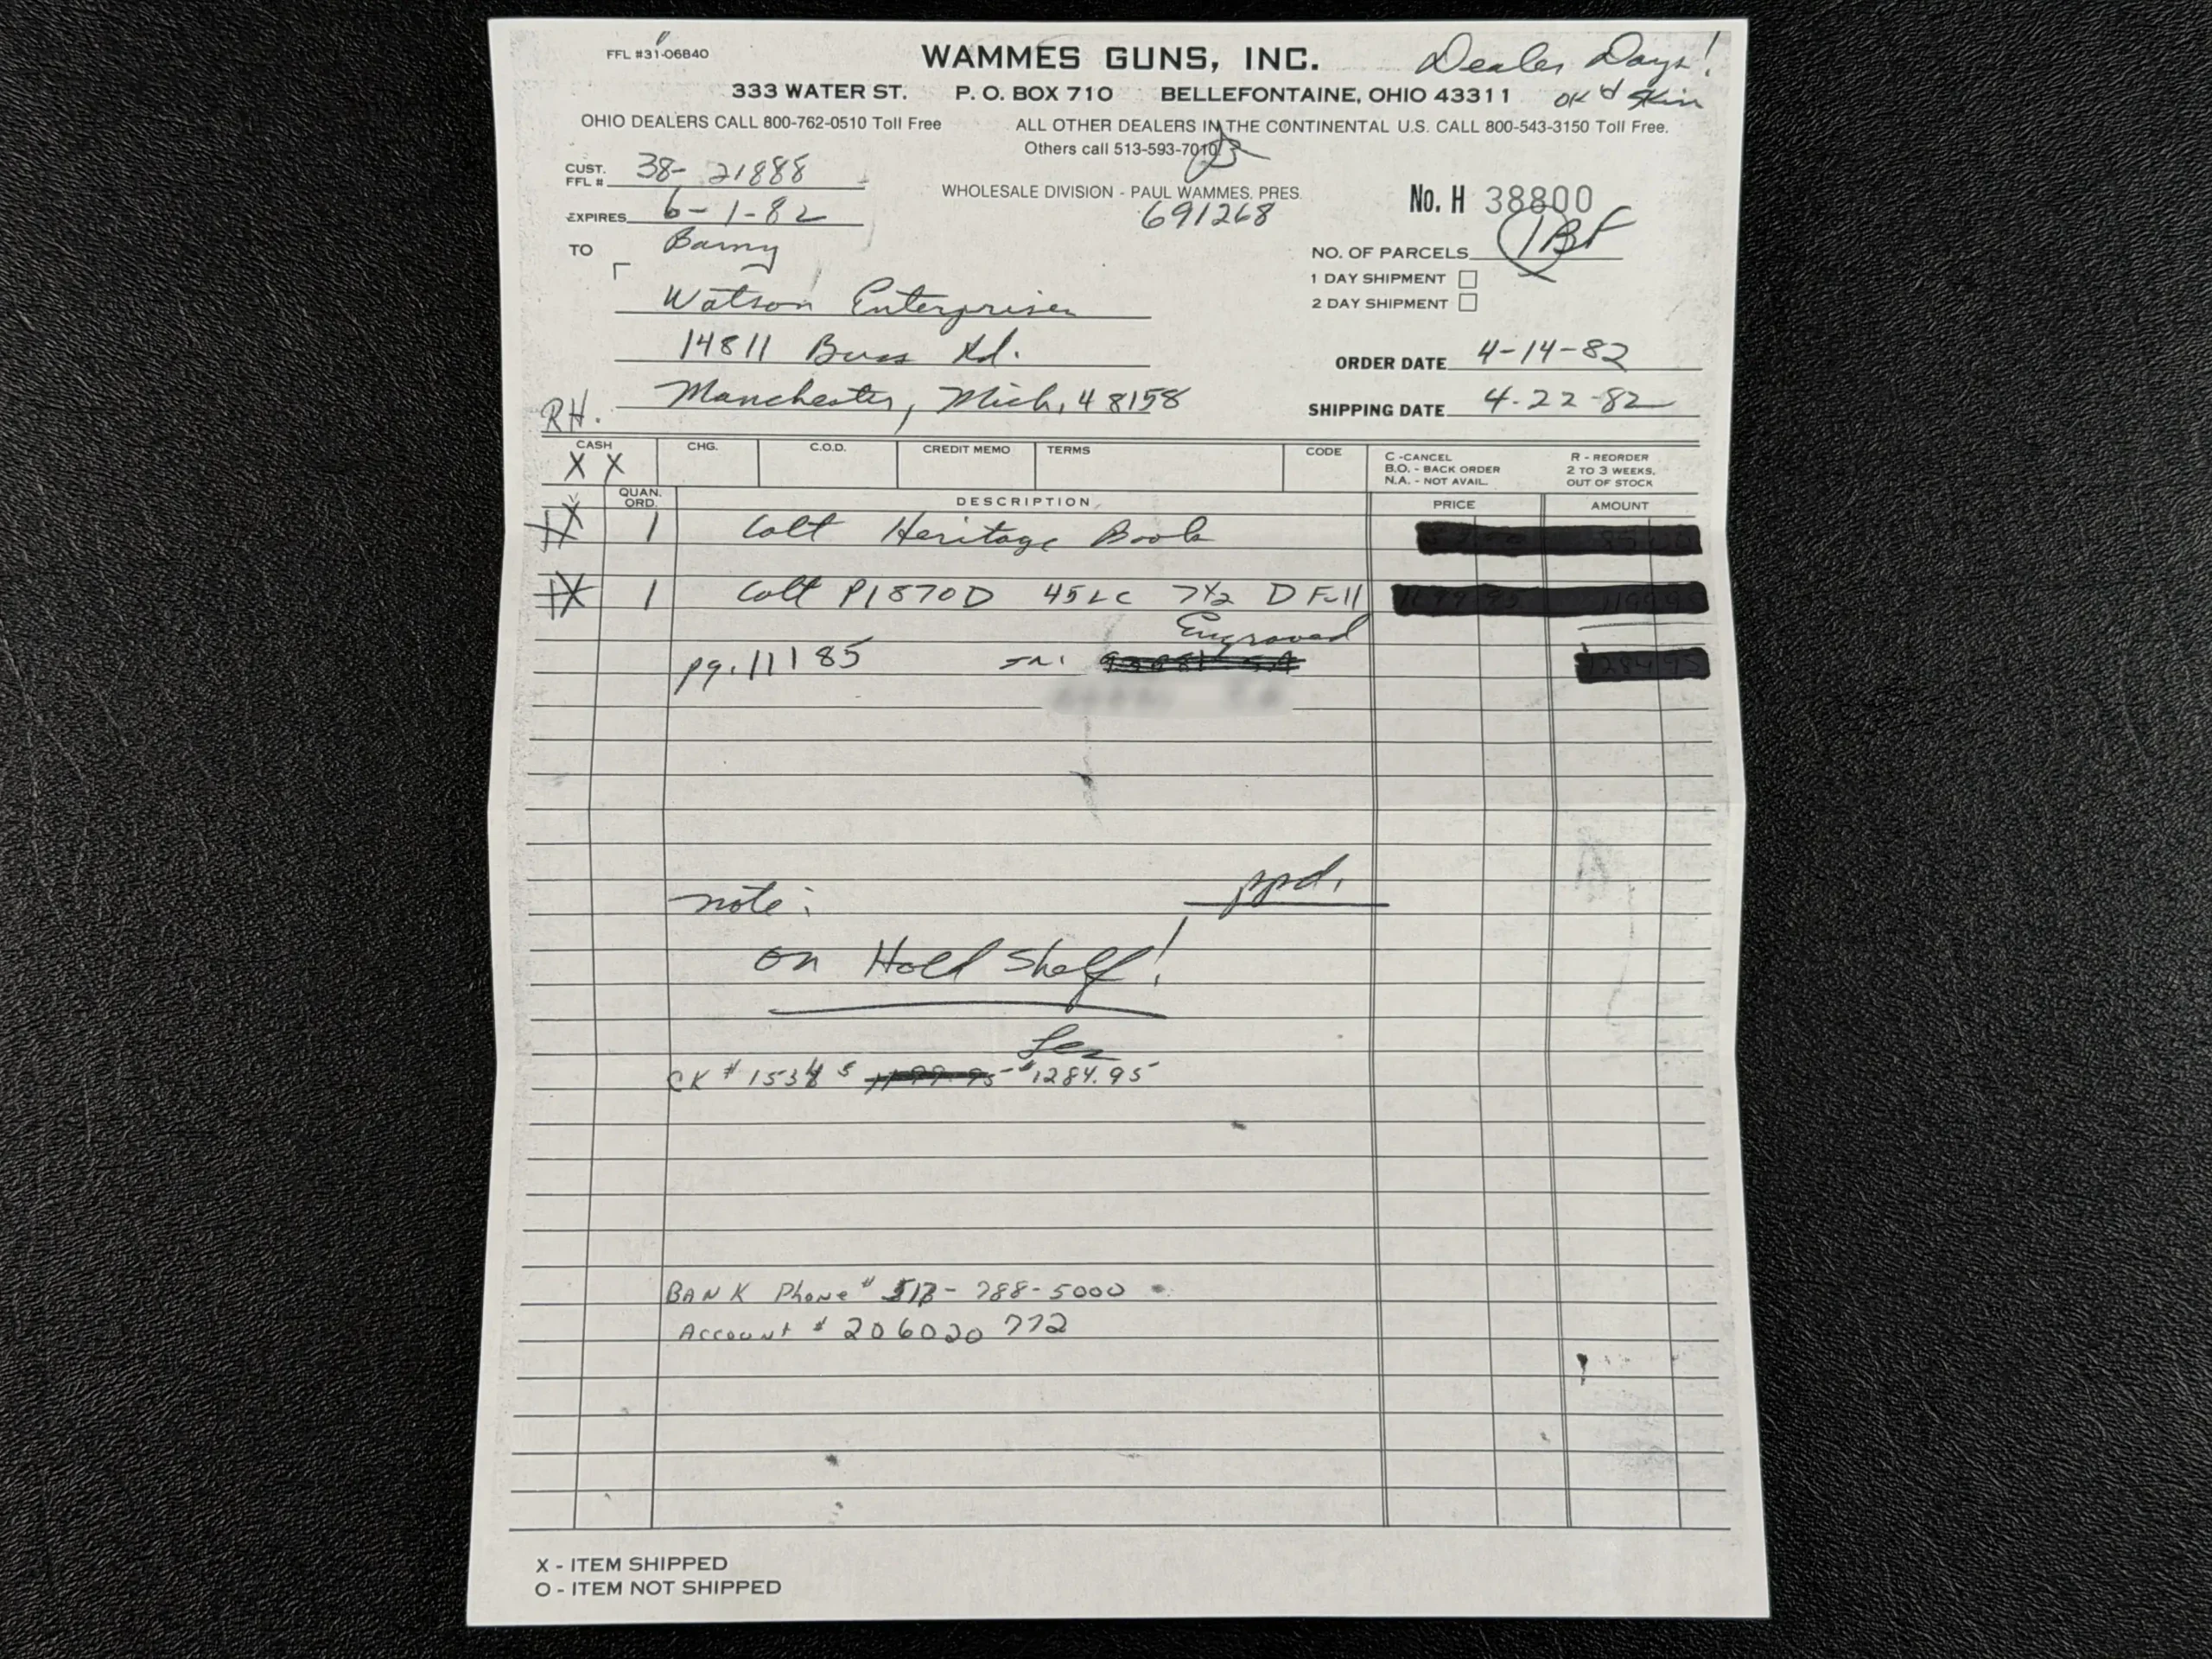 FFL #31-06840
WAMMES GUNS, INC.
Dealer Days!
333 WATER ST. P. O. BOX 710 BELLEFONTAINE, OHIO 43311
OK'd Skin
OHIO DEALERS CALL 800-762-0510 Toll Free
ALL OTHER DEALERS IN THE CONTINENTAL U.S. CALL 800-543-3150 Toll Free.
Others call 513-593-7010
CUST. FFL # 38-21888
WHOLESALE DIVISION - PAUL WAMMES, PRES.
691268
No. H 38800
EXPIRES 6-1-82
TO Barny
NO. OF PARCELS 1BF
1 DAY SHIPMENT
2 DAY SHIPMENT
Watson Enterprises
14811 Buss Rd.
ORDER DATE 4-14-82
Manchester, Mich, 48158
SHIPPING DATE 4-22-82
RH.
CASH CHG. C.O.D. CREDIT MEMO TERMS CODE
X X
C - CANCEL
B.O. - BACK ORDER
N.A. - NOT AVAIL.
R - REORDER
2 TO 3 WEEKS.
OUT OF STOCK
QUAN. ORD. DESCRIPTION PRICE AMOUNT
X 1 Colt Heritage Book
X 1 Colt P1870D 45LC 7½ D Full
Engraved
pg. 11185
note: ppd.
on Hold Shelf!
Lez
CK # 1538 $ 1199.95 $1284.95
BANK Phone # 513-788-5000
Account # 206020 772
X - ITEM SHIPPED
O - ITEM NOT SHIPPED